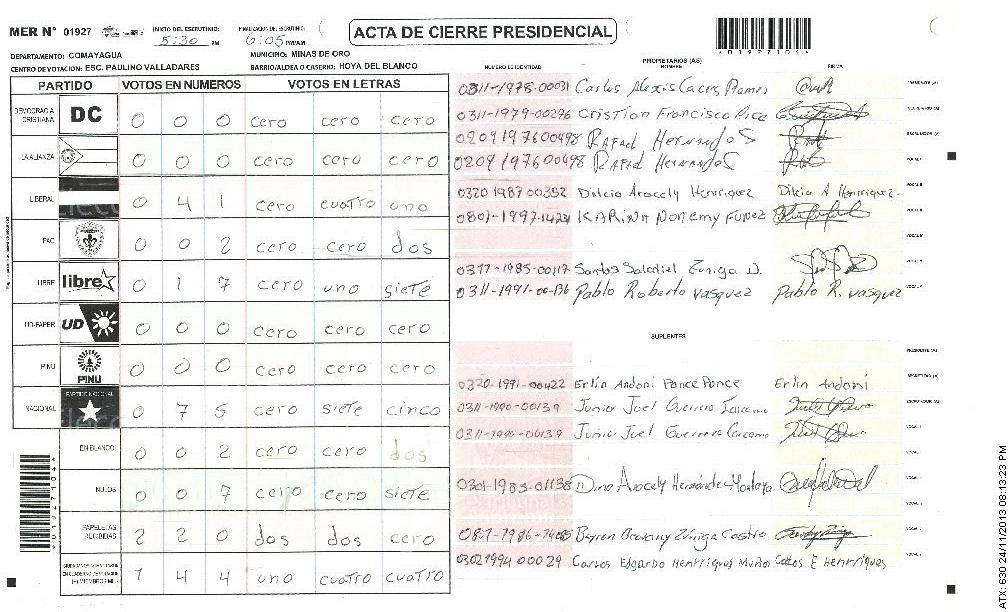 MER N° 01927
INICIO DEL ESCRUTINIO: 5:30 PM
FINALIZACION DE ESCRUTINIO: 6:05 PM/AM
ACTA DE CIERRE PRESIDENCIAL
DEPARTAMENTO: COMAYAGUA
MUNICIPIO: MINAS DE ORO
CENTRO DE VOTACION: ESC. PAULINO VALLADARES
BARRIO/ALDEA O CASERIO: HOYA DEL BLANCO
PARTIDO VOTOS EN NUMEROS VOTOS EN LETRAS
DEMOCRACIA CRISTIANA DC 0 0 0 cero cero cero
LA ALIANZA 0 0 0 cero cero cero
LIBERAL 0 4 1 cero cuatro uno
PAC 0 0 2 cero cero dos
LIBRE libre 0 1 7 cero uno siete
UD-FAPER UD 0 0 0 cero cero cero
PINU PINU 0 0 0 cero cero cero
NACIONAL PARTIDO NACIONAL 0 7 5 cero siete cinco
EN BLANCO 0 0 2 cero cero dos
NULOS 0 0 7 cero cero siete
PAPELETAS RECIBIDAS 2 2 0 dos dos cero
1 4 4 uno cuatro cuatro
PROPIETARIOS (AS)
NUMERO DE IDENTIDAD NOMBRE FIRMA
0311-1978-00031 Carlos Alexis PRESIDENTE (A)
0311-1979-00296 Cristian Francisco SECRETARIO (A)
0209197600498 Rafael Hernandes ESCRUTADOR (A)
0209197600498 Rafael Hernandes
0320 1987 00352 Dilcia Aracely Henriquez Dilcia A Henriquez
KARINA
Pablo Roberto Vasquez Pablo R. Vasquez
SUPLENTES
PRESIDENTE (A)
0320-1991-00422 Erlin Andoni Ponce Ponce Erlin Andoni SECRETARIO (A)
0311-1990-00139 Junior Joel Guerrero ESCRUTADOR (A)
0311-1990-00139 Junior Joel Guerrero
0301-1983-01138 Aracely Hernández
Zúniga Castro
0302 1994 00029 Carlos Edgardo Henriquez Carlos E Henriquez
ATX: 630 24/11/2013 08:13:23 PM